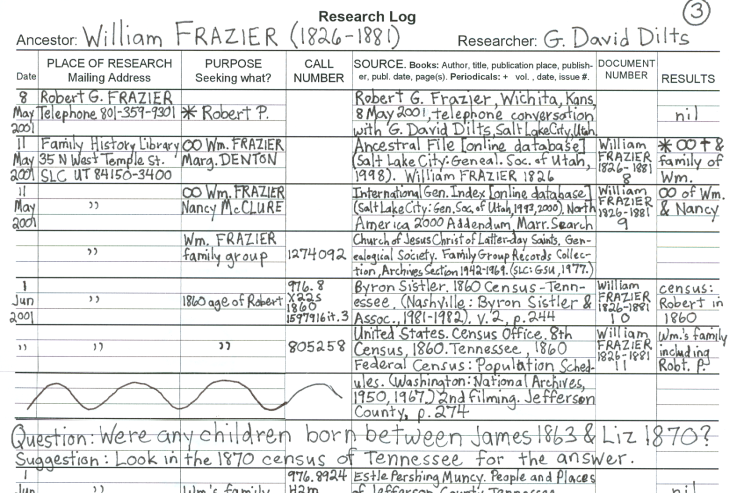 3
Research Log
Ancestor: William FRAZIER (1826-1881) Researcher: G. David Dilts
Date
PLACE OF RESEARCH
Mailing Address
PURPOSE
Seeking what?
CALL
NUMBER
SOURCE. Books: Author, title, publication place, publish-
er, publ. date, page(s). Periodicals: + vol. , date, issue #.
DOCUMENT
NUMBER
RESULTS
8
May
2001
Robert G. FRAZIER
Telephone 801-359-9301
* Robert P.
Robert G. Frazier, Wichita, Kans,
8 May 2001, telephone conversation
with G. David Dilts, Salt Lake City, Utah
nil
11
May
2001
Family History Library
35 N West Temple St.
SLC UT 84150-3400
∞ Wm. FRAZIER
Marg. DENTON
Ancestral File [online database]
(Salt Lake City: Geneal. Soc. of Utah,
1998). William FRAZIER 1826
William
FRAZIER
1826-1881
8
* ∞ + &
family of
Wm.
11
May
2001
"
∞ Wm. FRAZIER
Nancy McCLURE
International Gen. Index [online database]
(Salt Lake City: Gen. Soc. of Utah, 1993, 2000). North
America 2000 Addendum, Marr. Search
William
FRAZIER
1826-1881
9
∞ of Wm.
& Nancy
"
Wm. FRAZIER
family group
1274092
Church of Jesus Christ of Latter-day Saints, Gen-
ealogical Society. Family Group Records Collec-
tion, Archives Section 1942-1969. (SLC: GSU, 1977.)
1
Jun
2001
"
1860 age of Robert
976.8
X22s
1860
1597916 it.3
Byron Sistler. 1860 Census - Tenn-
essee. (Nashville: Byron Sistler &
Assoc., 1981-1982). v. 2, p. 244
William
FRAZIER
1826-1881
10
census:
Robert in
1860
"
"
"
805258
United States. Census Office. 8th
Census, 1860. Tennessee, 1860
Federal Census: Population Sched-
ules. (Washington: National Archives,
1950, 1967.) 2nd filming. Jefferson
County, p. 274
William
FRAZIER
1826-1881
11
Wm.'s family
including
Robt. P.
Question: Were any children born between James 1863 & Liz 1870?
Suggestion: Look in the 1870 census of Tennessee for the answer.
1
Jun
"
Wm's family
976.8924
H2m
Estle Pershing Muncy. People and Places
of Jefferson County Tennessee
nil